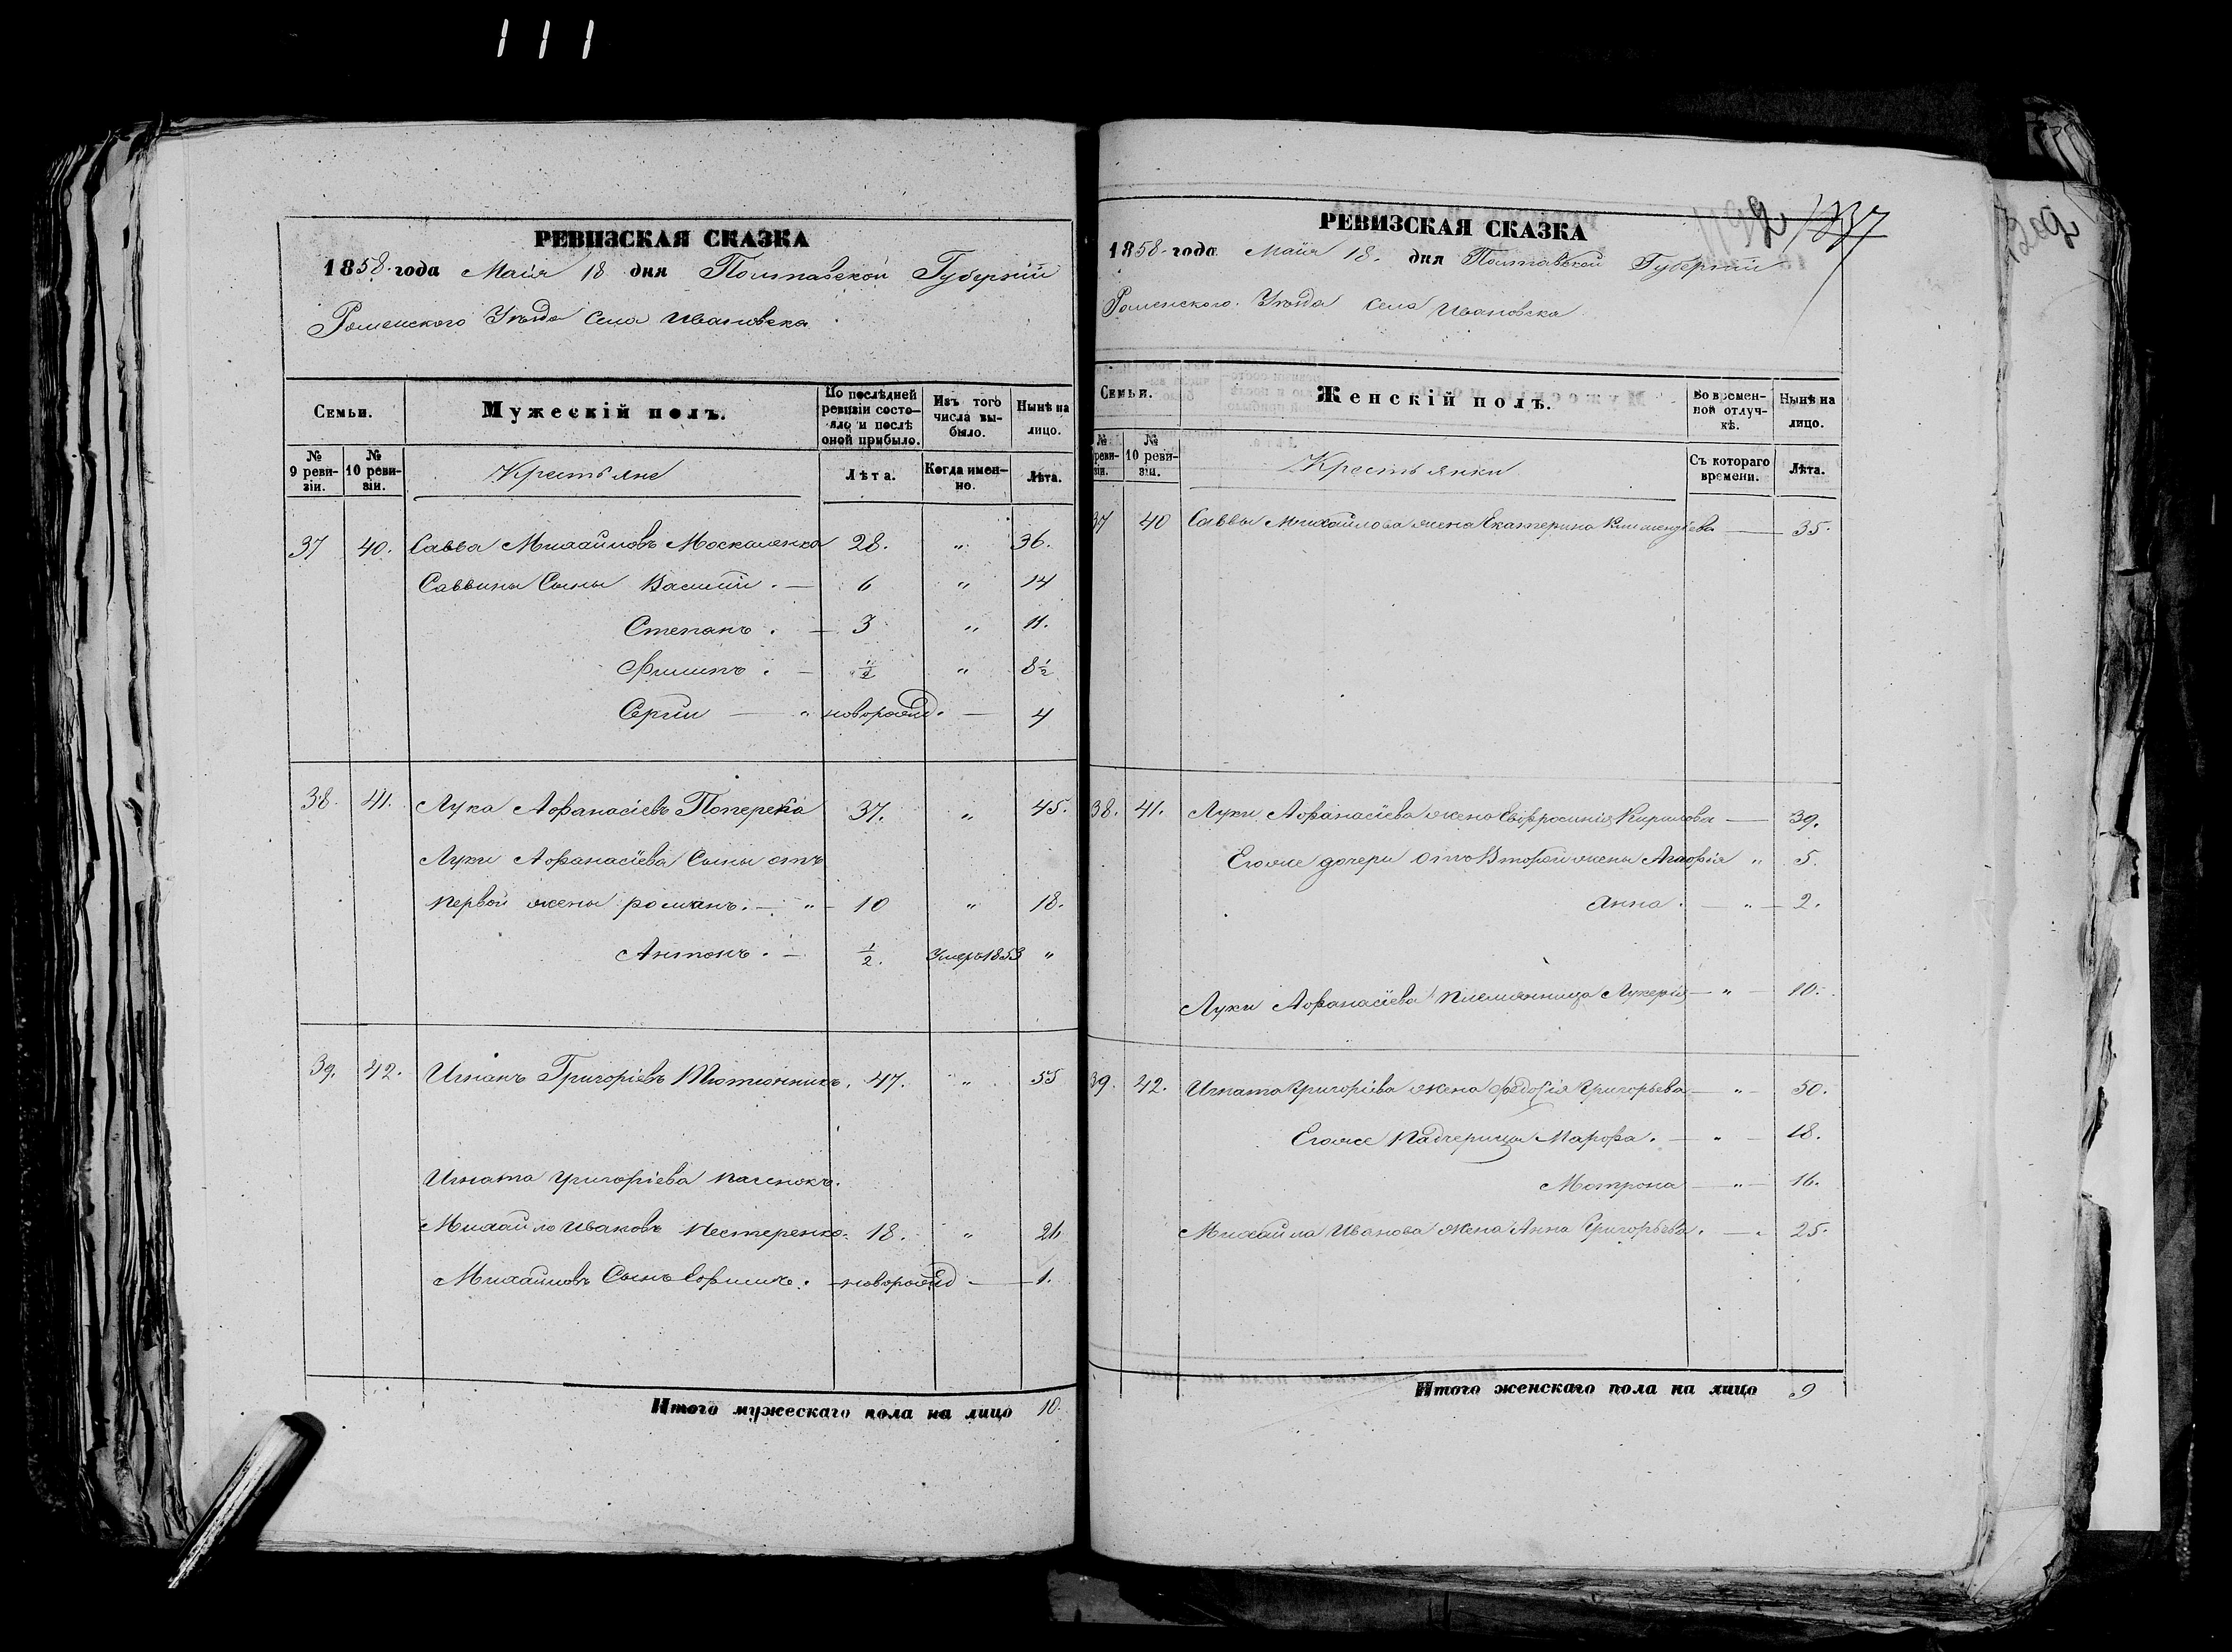 111
РЕВИЗСКАЯ СКАЗКА
1858 года Маія 18 дня Полтавской Губерніи
Роменского Уѣзда Села Ивановска
Семьи.
Мужескій полъ.
По послѣдней ревизіи состо-
яло и послѣ оной прибыло.
Изъ того числа вы-
было.
Нынѣ на лицо.
№ 9 реви-
зіи.
№ 10 реви-
зіи.
Крестьяне
Лѣта.
Когда имен-
но.
Лѣта.
37 40. Савва Михайловъ Москаленко 28. " 36.
Саввины Сыны Василій. — 6 " 14
Степанъ. — 3 " 11.
Филипъ. — 1/2 " 8 1/2
Сергій — " новорожд. — 4
38. 41. Лука Афанасіевъ Поперека 37. " 45.
Луки Афанасіева Сыны отъ
первой жены романъ. — " — 10 " 18.
Антонъ. — 1/2. Умеръ 1853 "
39. 42. Игнатъ Григоріевъ Тютюнникъ. 47. " 55
Игната Григоріева пасынокъ.
Михайло Ивановъ Нестеренко. 18. " 26
Михайловъ Сынъ Ефимъ. — новорожд — 1.
Итого мужескаго пола на лицо 10.
137
РЕВИЗСКАЯ СКАЗКА
1858 года Маія 18. дня Полтавской Губерніи
Роменского Уѣзда Села Ивановска
Семьи.
Женскій полъ.
Во времен-
ной отлуч-
кѣ.
Нынѣ на лицо.
№ реви-
зіи.
№ 10 реви-
зіи.
Крестьянки
Съ котораго времени.
Лѣта.
37 40 Саввы Михайлова жена Екатерина Климентіева — 35.
38. 41. Луки Афанасіева жена Евфросинія Кирилова — 39.
Егоже дочери отъ Второй жены Агафія " 5.
Анна. — " — 2.
Луки Афанасіева племянница Лукерія — " — 10.
39. 42. Игната Григоріева жена Федосія Григорьева — " — 50.
Егоже Падчерицы Марфа. — " — 18.
Мотрона — " — 16.
Михайла Иванова жена Анна Григорьева. — " 25.
Итого женскаго пола на лицо 9